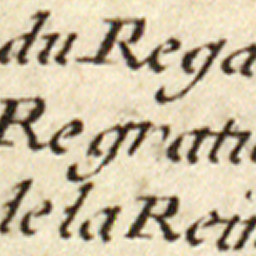 du Rega
Regratie
de la Rein